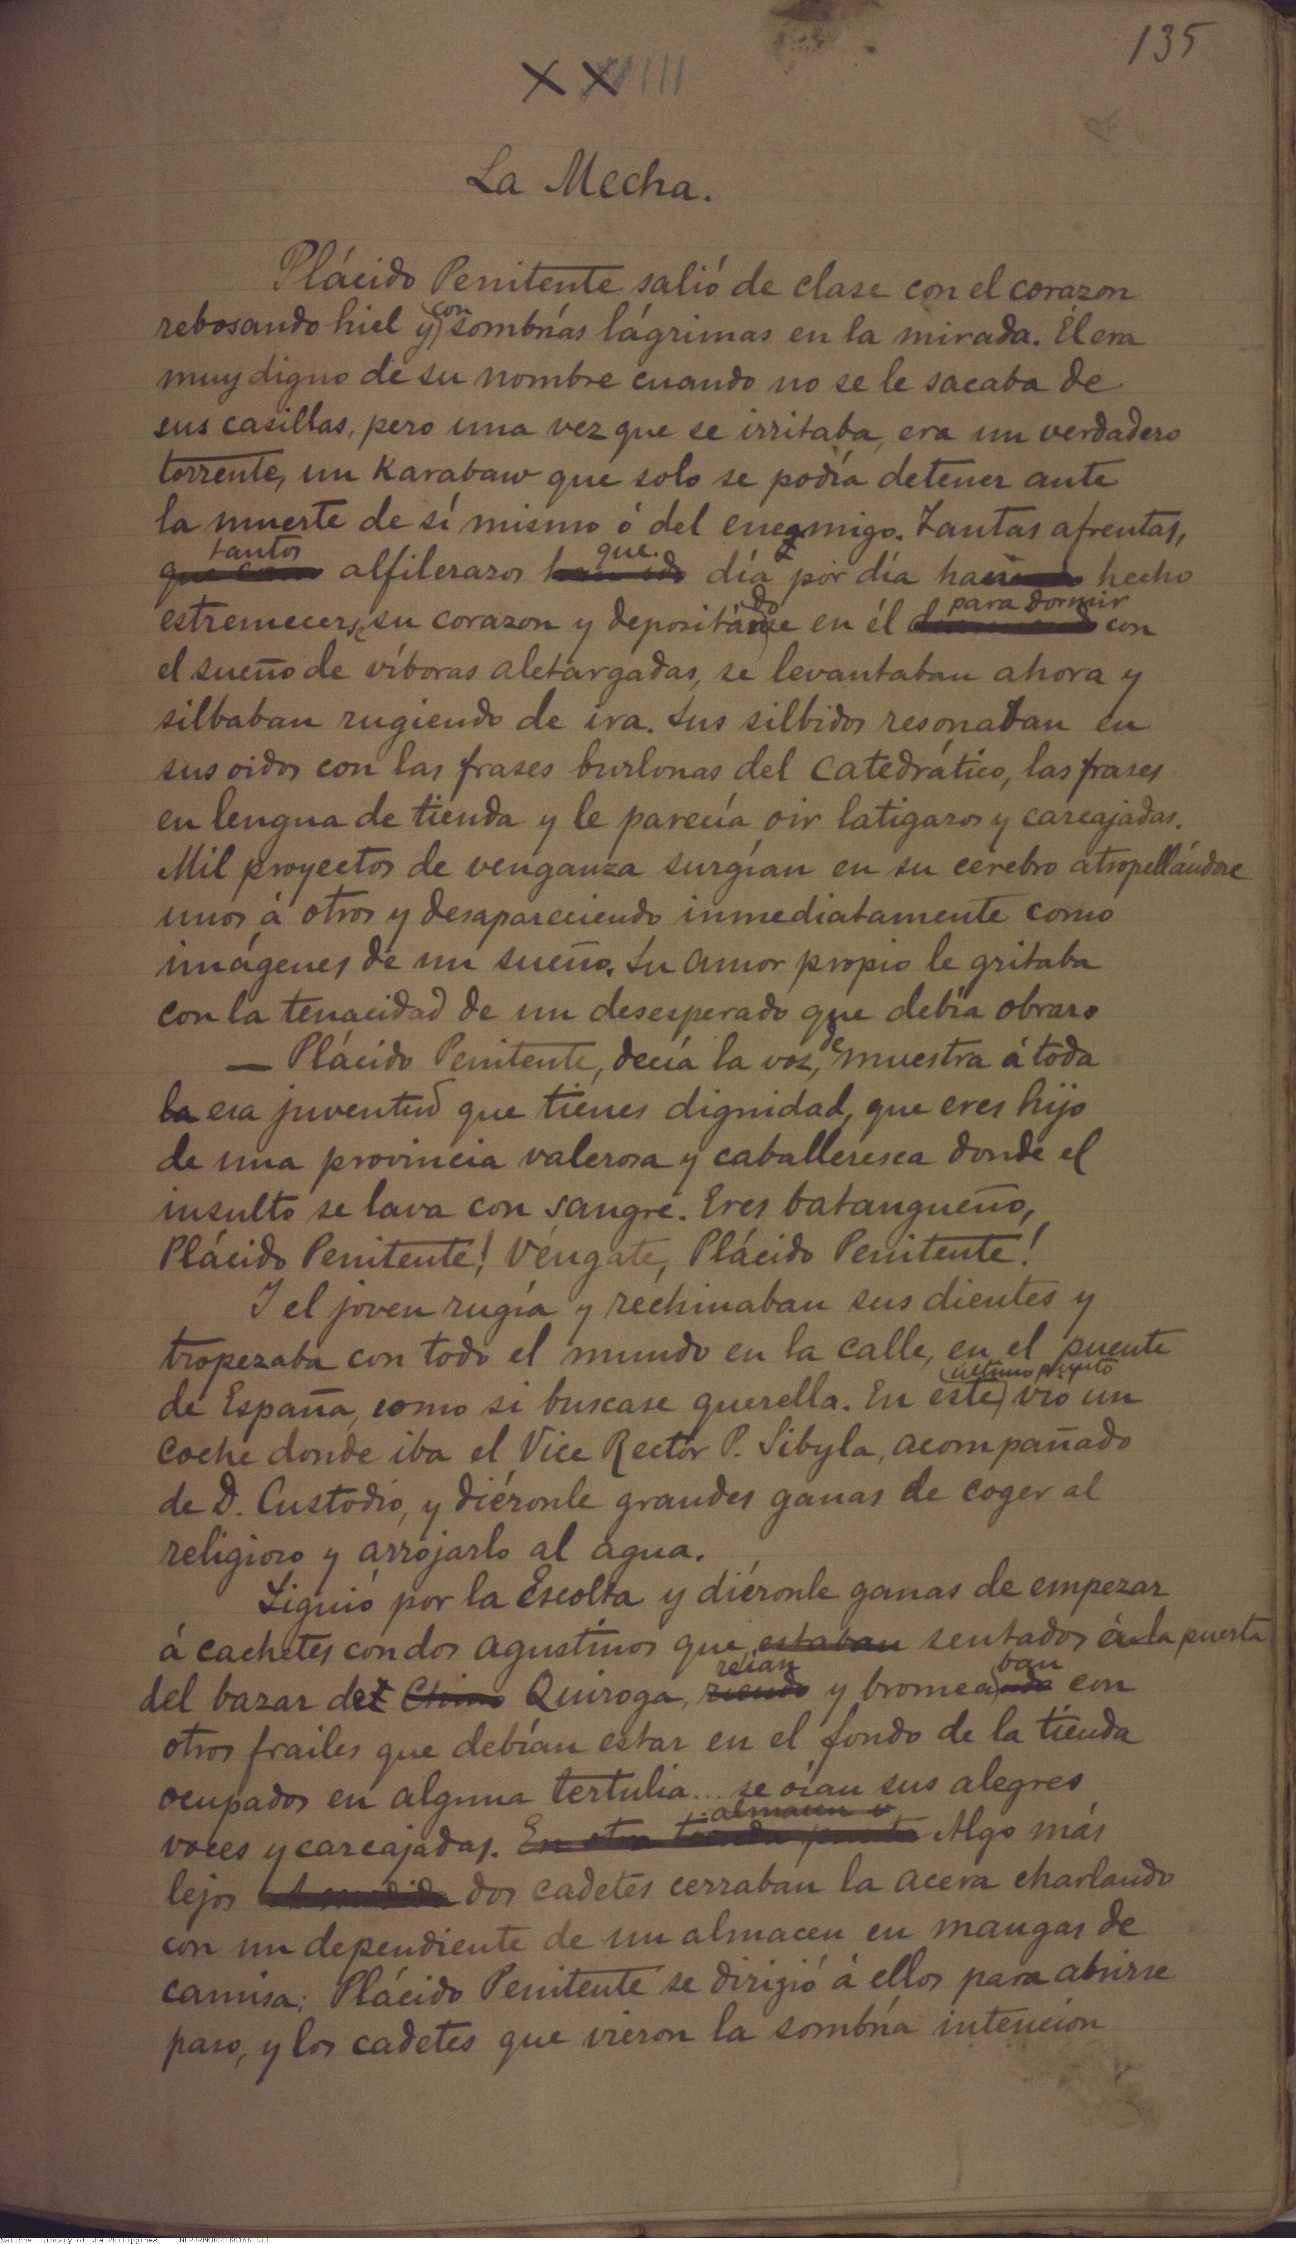 135
XX
La Mecha.
Plácido Penitente salió de clase con el corazon
rebosando hiel y con sombrías lágrimas en la mirada. Él era
muy digno de su nombre cuando no se le sacaba de
sus casillas, pero una vez que se irritaba, era un verdadero
torrente, un Karabaw que solo se podía detener ante
la muerte de sí mismo ó del enemigo. Tantas afrentas,
tantos alfilerazos que día por día han hecho
estremecerse su corazon y depositándose en él para dormir con
el sueño de víboras aletargadas, se levantaban ahora y
silbaban rugiendo de ira. Sus silbidos resonaban en
sus oidos con las frases burlonas del catedrático, las frases
en lengua de tienda y le parecía oir latigazos y carcajadas.
Mil proyectos de venganza surgían en su cerebro atropellándose
unos á otros y desapareciendo inmediatamente como
imágenes de un sueño. Su amor propio le gritaba
con la tenacidad de un desesperado que debía obrar.
— Plácido Penitente, decía la voz, muestra á toda
esa juventud que tienes dignidad, que eres hijo
de una provincia valerosa y caballeresca donde el
insulto se lava con sangre. Eres batangueño,
Plácido Penitente! Véngate, Plácido Penitente!
Y el joven rugía y rechinaban sus dientes y
tropezaba con todo el mundo en la calle, en el puente
de España, como si buscase querella. En este último punto vió un
coche donde iba el Vice Rector P. Sibyla, acompañado
de D. Custodio, y diéronle grandes ganas de coger al
religioso y arrojarlo al agua.
Siguió por la Escolta y diéronle ganas de empezar
á cachetes con dos agustinos que estaban sentados á la puerta
del bazar de Chino Quiroga, reían riendo y bromeaban con
otros frailes que debían estar en el fondo de la tienda
ocupados en alguna tertulia... se oían sus alegres
voces y carcajadas. En otra tienda almacen Algo más
lejos dos cadetes cerraban la acera charlando
con un dependiente de un almacen en mangas de
camisa: Plácido Penitente se dirigió á ellos para abrirse
paso, y los cadetes que vieron la sombría intencion